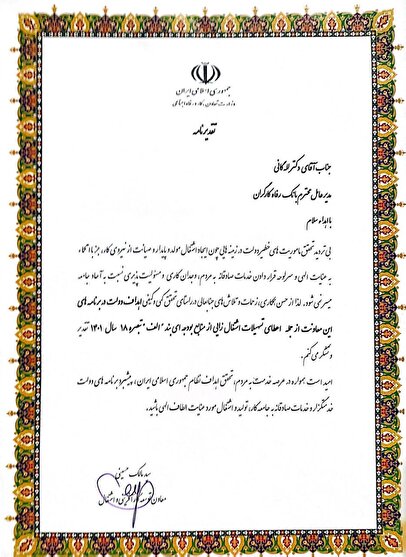 جمهوری اسلامی ایران
وزارت تعاون، کار و رفاه اجتماعی
تقدیرنامه
جناب آقای دکتر للـه‌گانی
مدیرعامل محترم بانک رفاه کارگران
با اهداء سلام
بی تردید تحقق ماموریت های خطیر دولت در زمینه هایی چون ایجاد اشتغال مولد و پایدار و صیانت از نیروی کار، جز با اتکاء
به عنایت الهی و سرلوحه قرار دادن خدمات صادقانه به مردم، وجدان کاری و مسئولیت پذیری نسبت به آحاد جامعه
میسر نمی شود. لذا از حسن همکاری، زحمات و تلاش های جنابعالی در راستای تحقق کمی و کیفی اهداف دولت در برنامه های
این معاونت از جمله اعطای تسهیلات اشتغال زایی از منابع بودجه ای بند "الف" تبصره ۱۸ سال ۱۴۰۱ تقدیر
و تشکر می کنم.
امید است همواره در عرصه خدمت به مردم، تحقق اهداف نظام جمهوری اسلامی ایران، پیشبرد برنامه های دولت
خدمتگزار و خدمات صادقانه به جامعه کار، تولید و اشتغال مورد عنایت الطاف الهی باشید.
سید مالک حسینی
معاون توسعه کارآفرینی و اشتغال